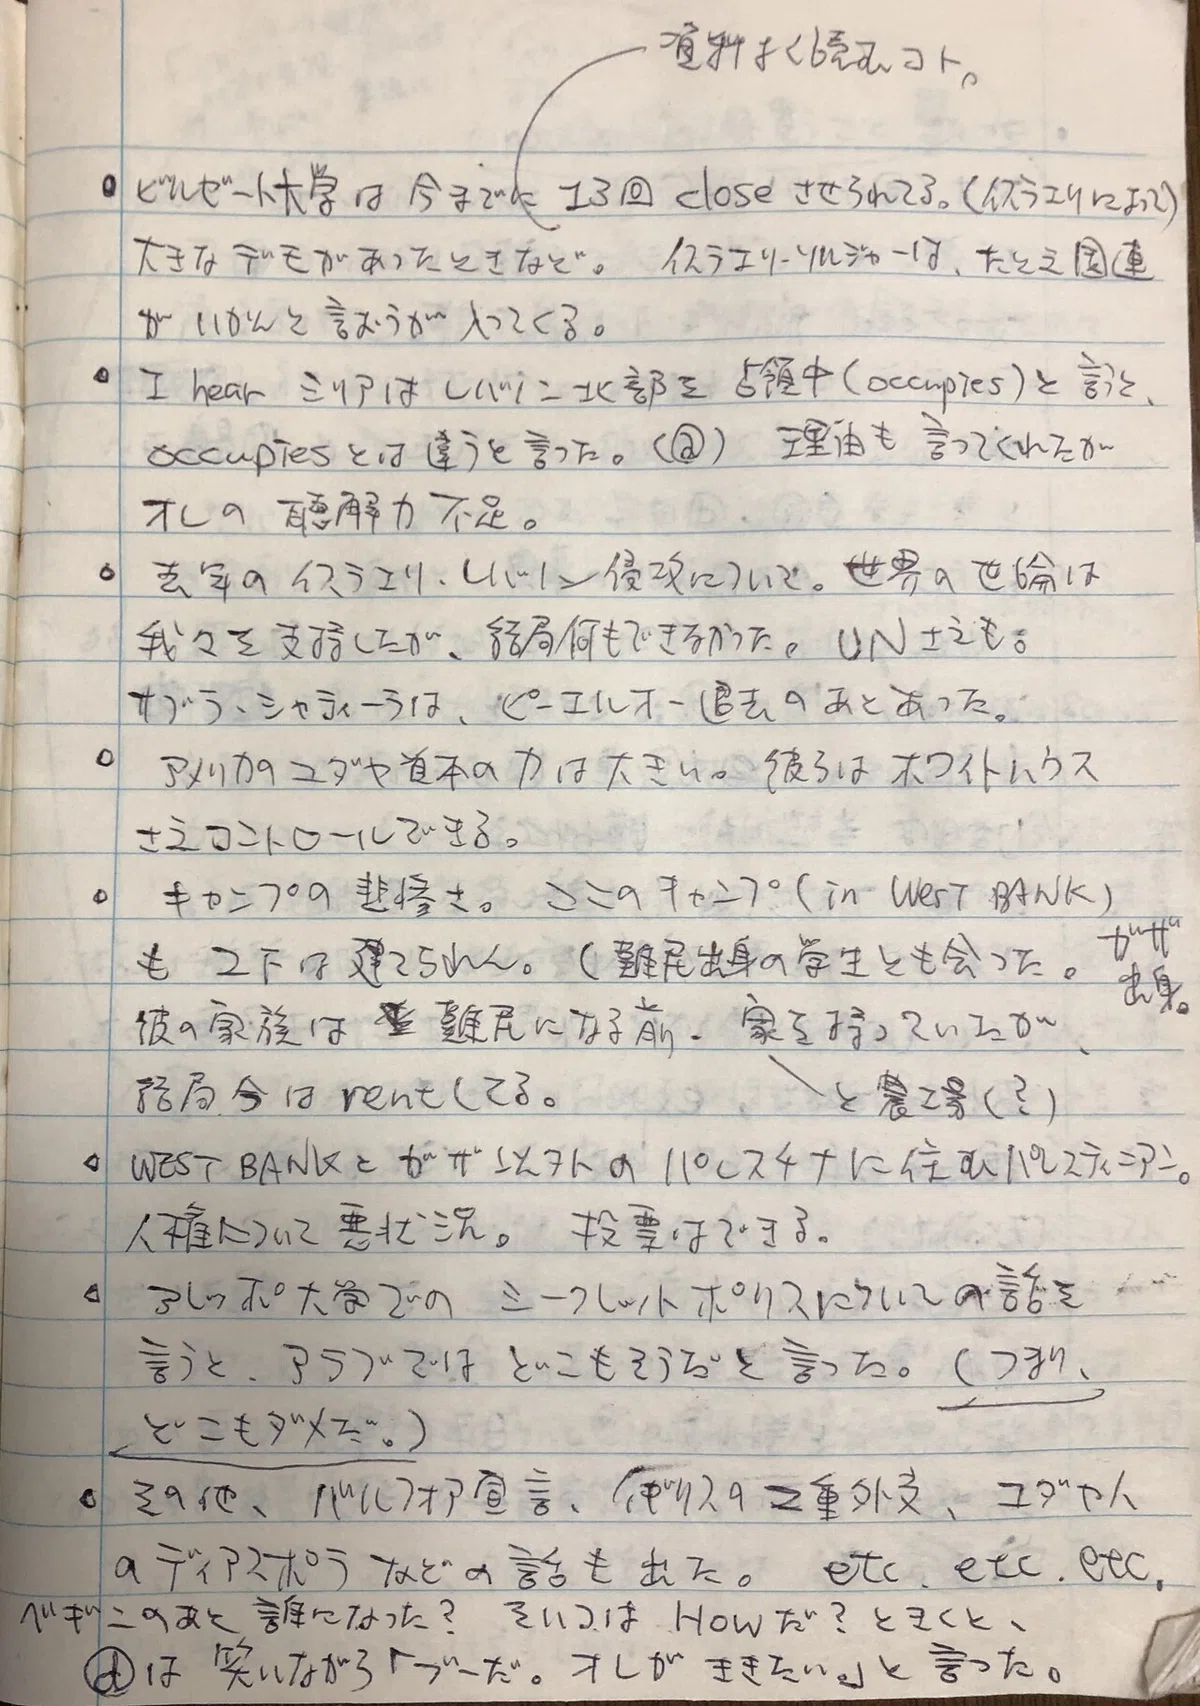 資料よく読むコト。
ビルゼート大学は今までに13回closeさせられてる。(イスラエリによって)
大きなデモがあったときなど。 イスラエリ・ソルジャーは、たとえ国連
がいかんと言おうが入ってくる。
I hear シリアはレバノン北部を占領中(occupies)と言うと、
occupiesとは違うと言った。(ⓐ) 理由も言ってくれたが
オレの聴解力不足。
去年のイスラエリ・レバノン侵攻について。世界の世論は
我々を支持したが、結局何もできなかった。UNさえも。
サブラ・シャティーラは、ピーエルオー退去のあとあった。
アメリカのユダヤ資本の力は大きい。彼らはホワイトハウス
さえコントロールできる。
キャンプの悲惨さ。ここのキャンプ(in WEST BANK)
も 2下は建てられん。(難民出身の学生とも会った。ガザ
出身。
彼の家族は 難民になる前、家を持っていたが、
結局今はrentしてる。
と農工場(?)
WEST BANKとガザ以外のパレスチナに住むパレスティニアン。
人権について悪状況。 投票はできる。
アレッポ大学でのシークレットポリスについての話を
言うと、アラブではどこもそうだと言った。(つまり、
どこもダメだ。)
その他、バルフォア宣言、イギリスの二重外交、ユダヤ人
のディアスポラなどの話も出た。 etc. etc. etc.
ベギンのあと誰になった? そいつはHowだ?ときくと、
ⓓは笑いながら「ブーだ。オレがききたい。」と言った。